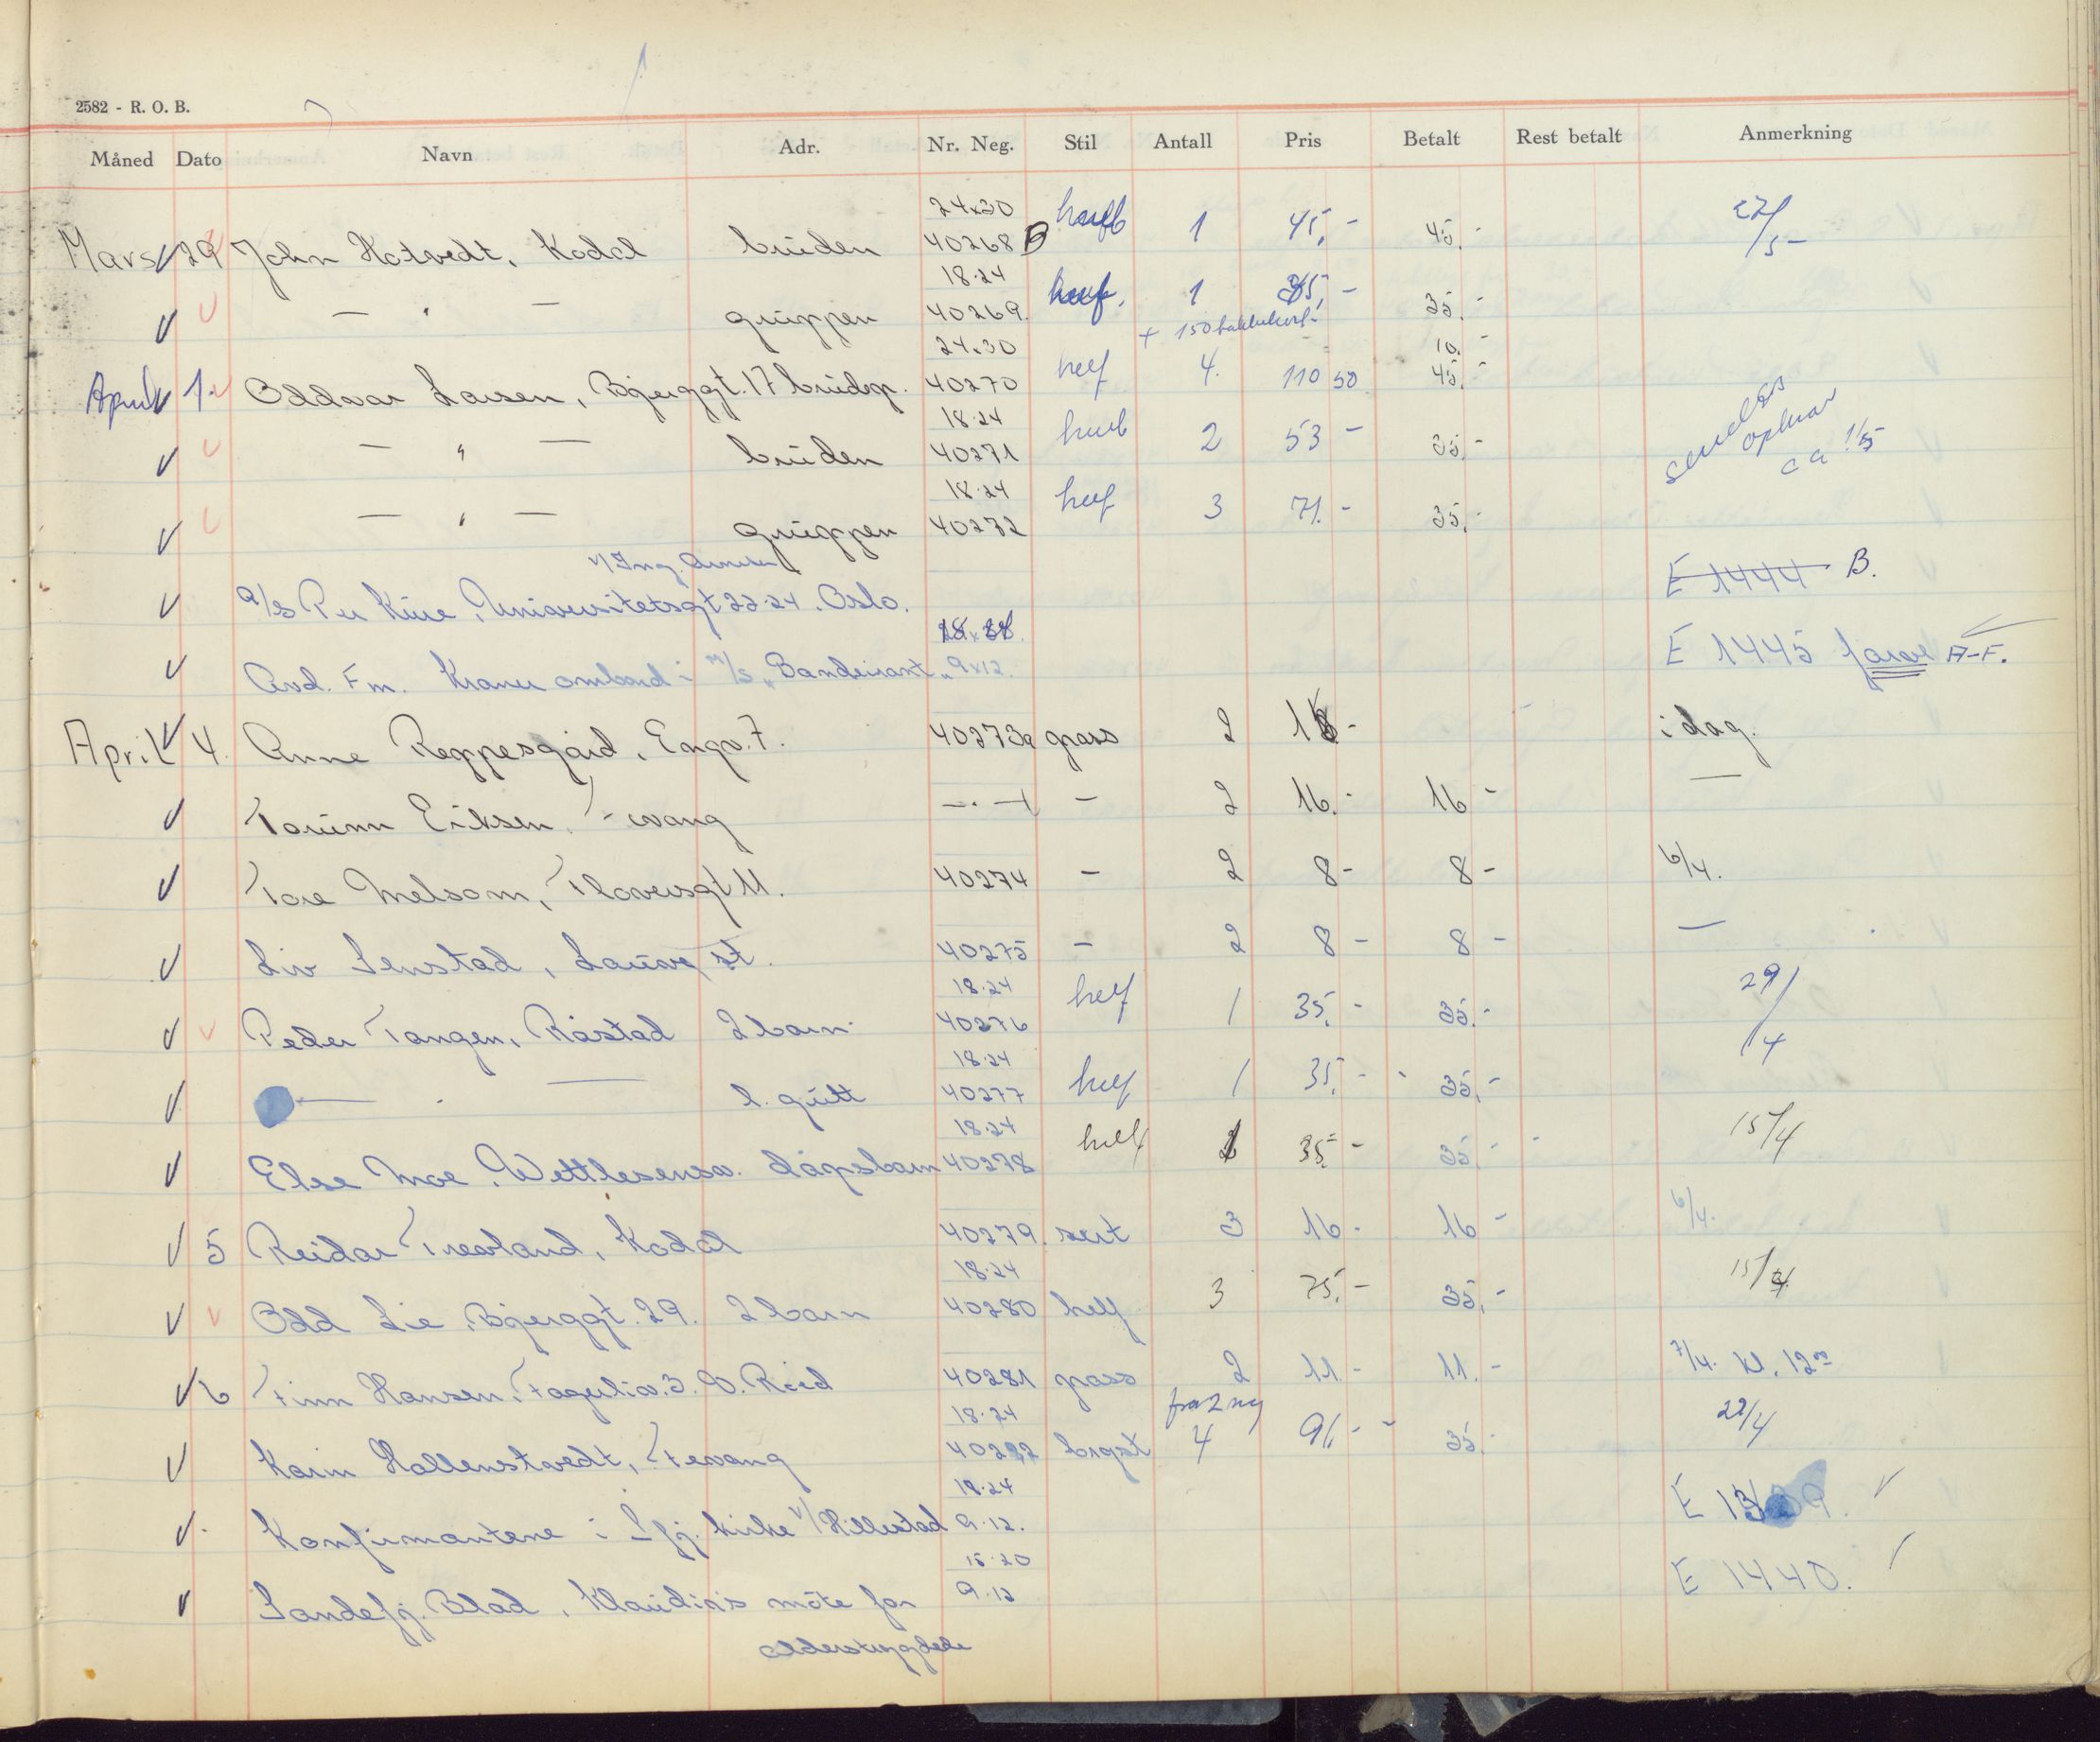 2582 - R. O. B.
Måned Dato Navn Adr. Nr. Neg. Stil Antall Pris Betalt Rest betalt Anmerkning
24x30
Mars 29 John Hotvedt, Kodal bruden 40268 B 1 45,- 45,- 27/5
18.24
— " — gruppen 40269. 1 35,- 35,-
+ 150
24x30 10,-
April 1. Oddvar Larsen, Bjerggt. 17 brudep. 40270 helf 4. 110 50 45,-
18.24
— " — bruden 40271 2 53 - 35,- sendes
opkrav
ca 1/5
18.24
— " — gruppen 40272 helf 3 71.- 35,-
v/ Ing.
E 1444 B.
A/S Per Kure, Universitetsgt 22-24. Oslo.
Avd. Fm. Kraner ombord i M/S "Bandeirant" 9x12. E 1445 A-F.
April 4. Anne Reppesgård, Engv. 7. 40273a grass 2 16- i dag.
Torunn Eriksen, Fevang —.— - 2 16.- 16 - —
Tore Melsom, Thoversgt 11. 40274 - 2 8- 8- 6/4.
Liv Senstad, Lauve st. 40275 - 2 8 - 8 - —
18.24
Peder Tangen, Råstad 2 barn 40276 helf 1 35,- 35.- 29/4
18.24
— " — l. gutt 40277 helf 1 35,- 35,-
18.24
Else Moe, Wettlesensv. dåpsbarn 40278 helf 1 35,- 35,- 15/4
5 Reidar Trevland, Kodal 40279. sert 3 16- 16 - 6/4.
18.24
Odd Lie, Bjerggt. 29. 2 barn 40280 helf 3 75,- 35,- 15/4
6 Finn Hansen, Fagerliv. 3. 40281 grass 2 11- 11.- 7/4. kl. 12
18.24 fra 2 neg
Karin Hallenstvedt, Fevang 40282 bryst 4 91,- 35,- 22/4
18.24
Konfirmantene i Sfj. kirke v/ Hillestad 9.12.
15.20
Sandefj. Blad, Klaudius møte for 9.12 E 1440.
alderstrygdede